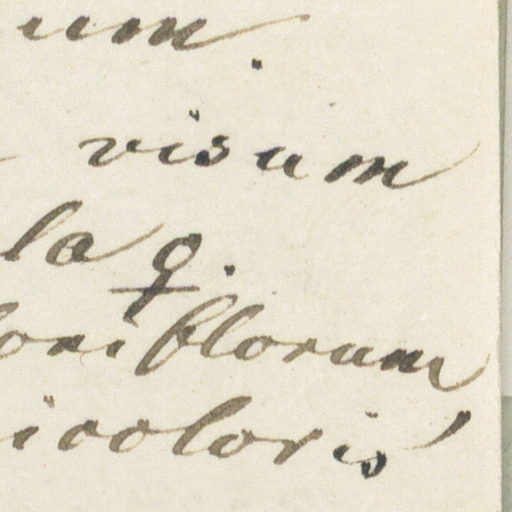 um.
visum
la ♀.
florum
icoloris